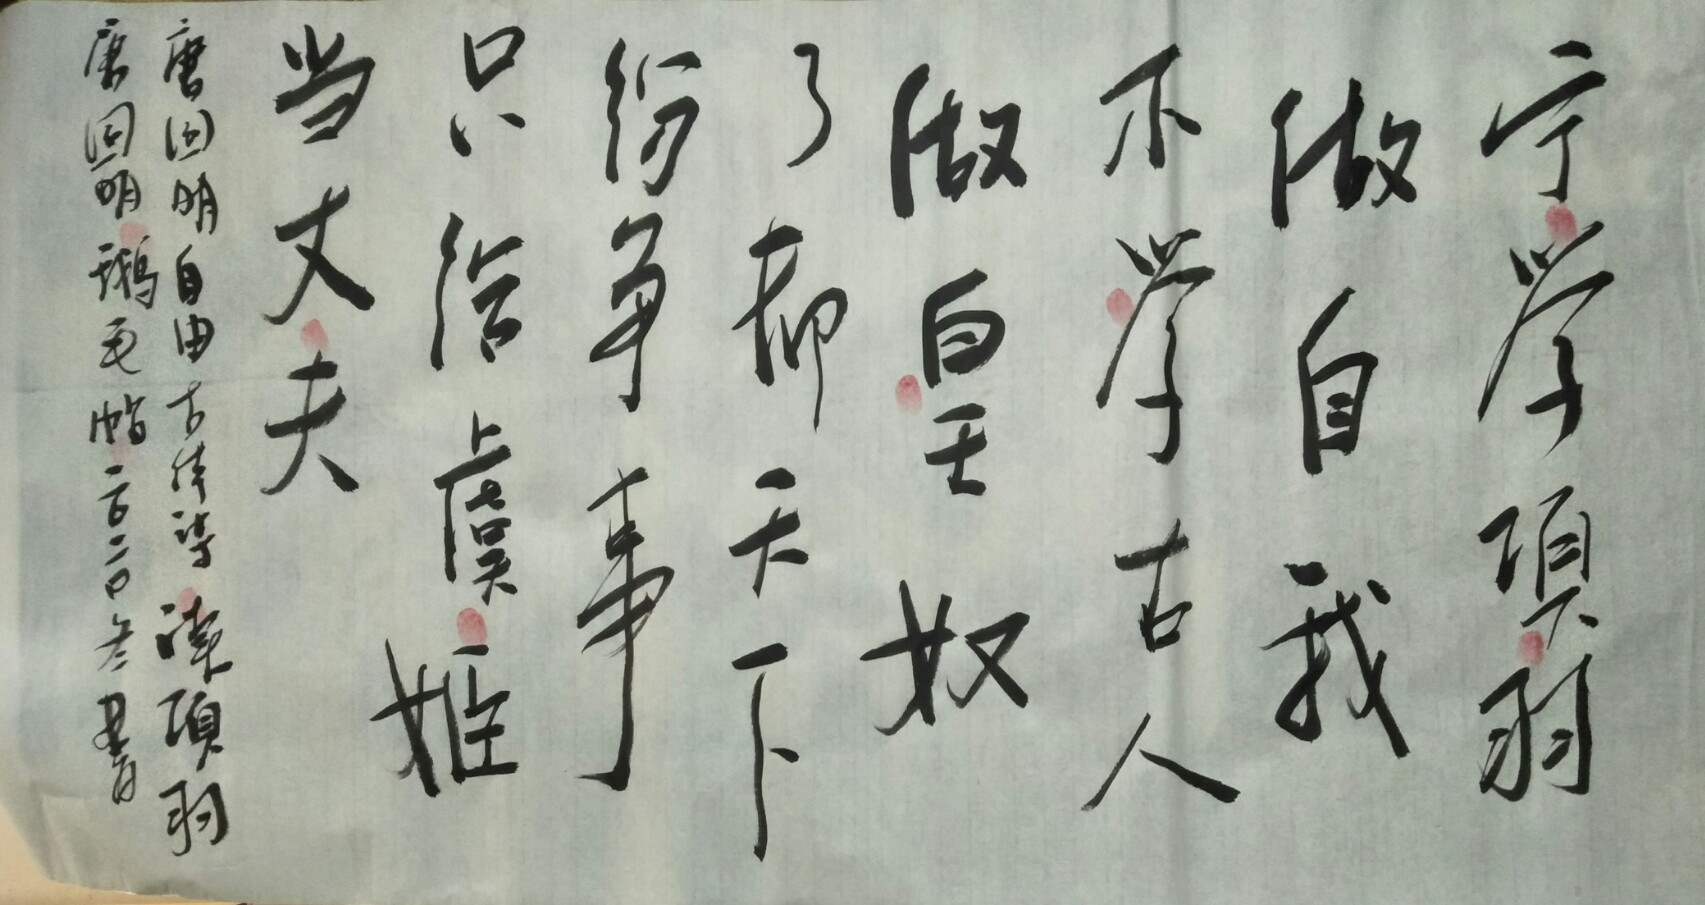 宁学項羽
做自我
不学古人
做皇王奴
了却天下
纷争事
只给虞姬
当丈夫
唐回明自由古体诗 读項羽
唐回明鹅毛帖二〇二〇冬書